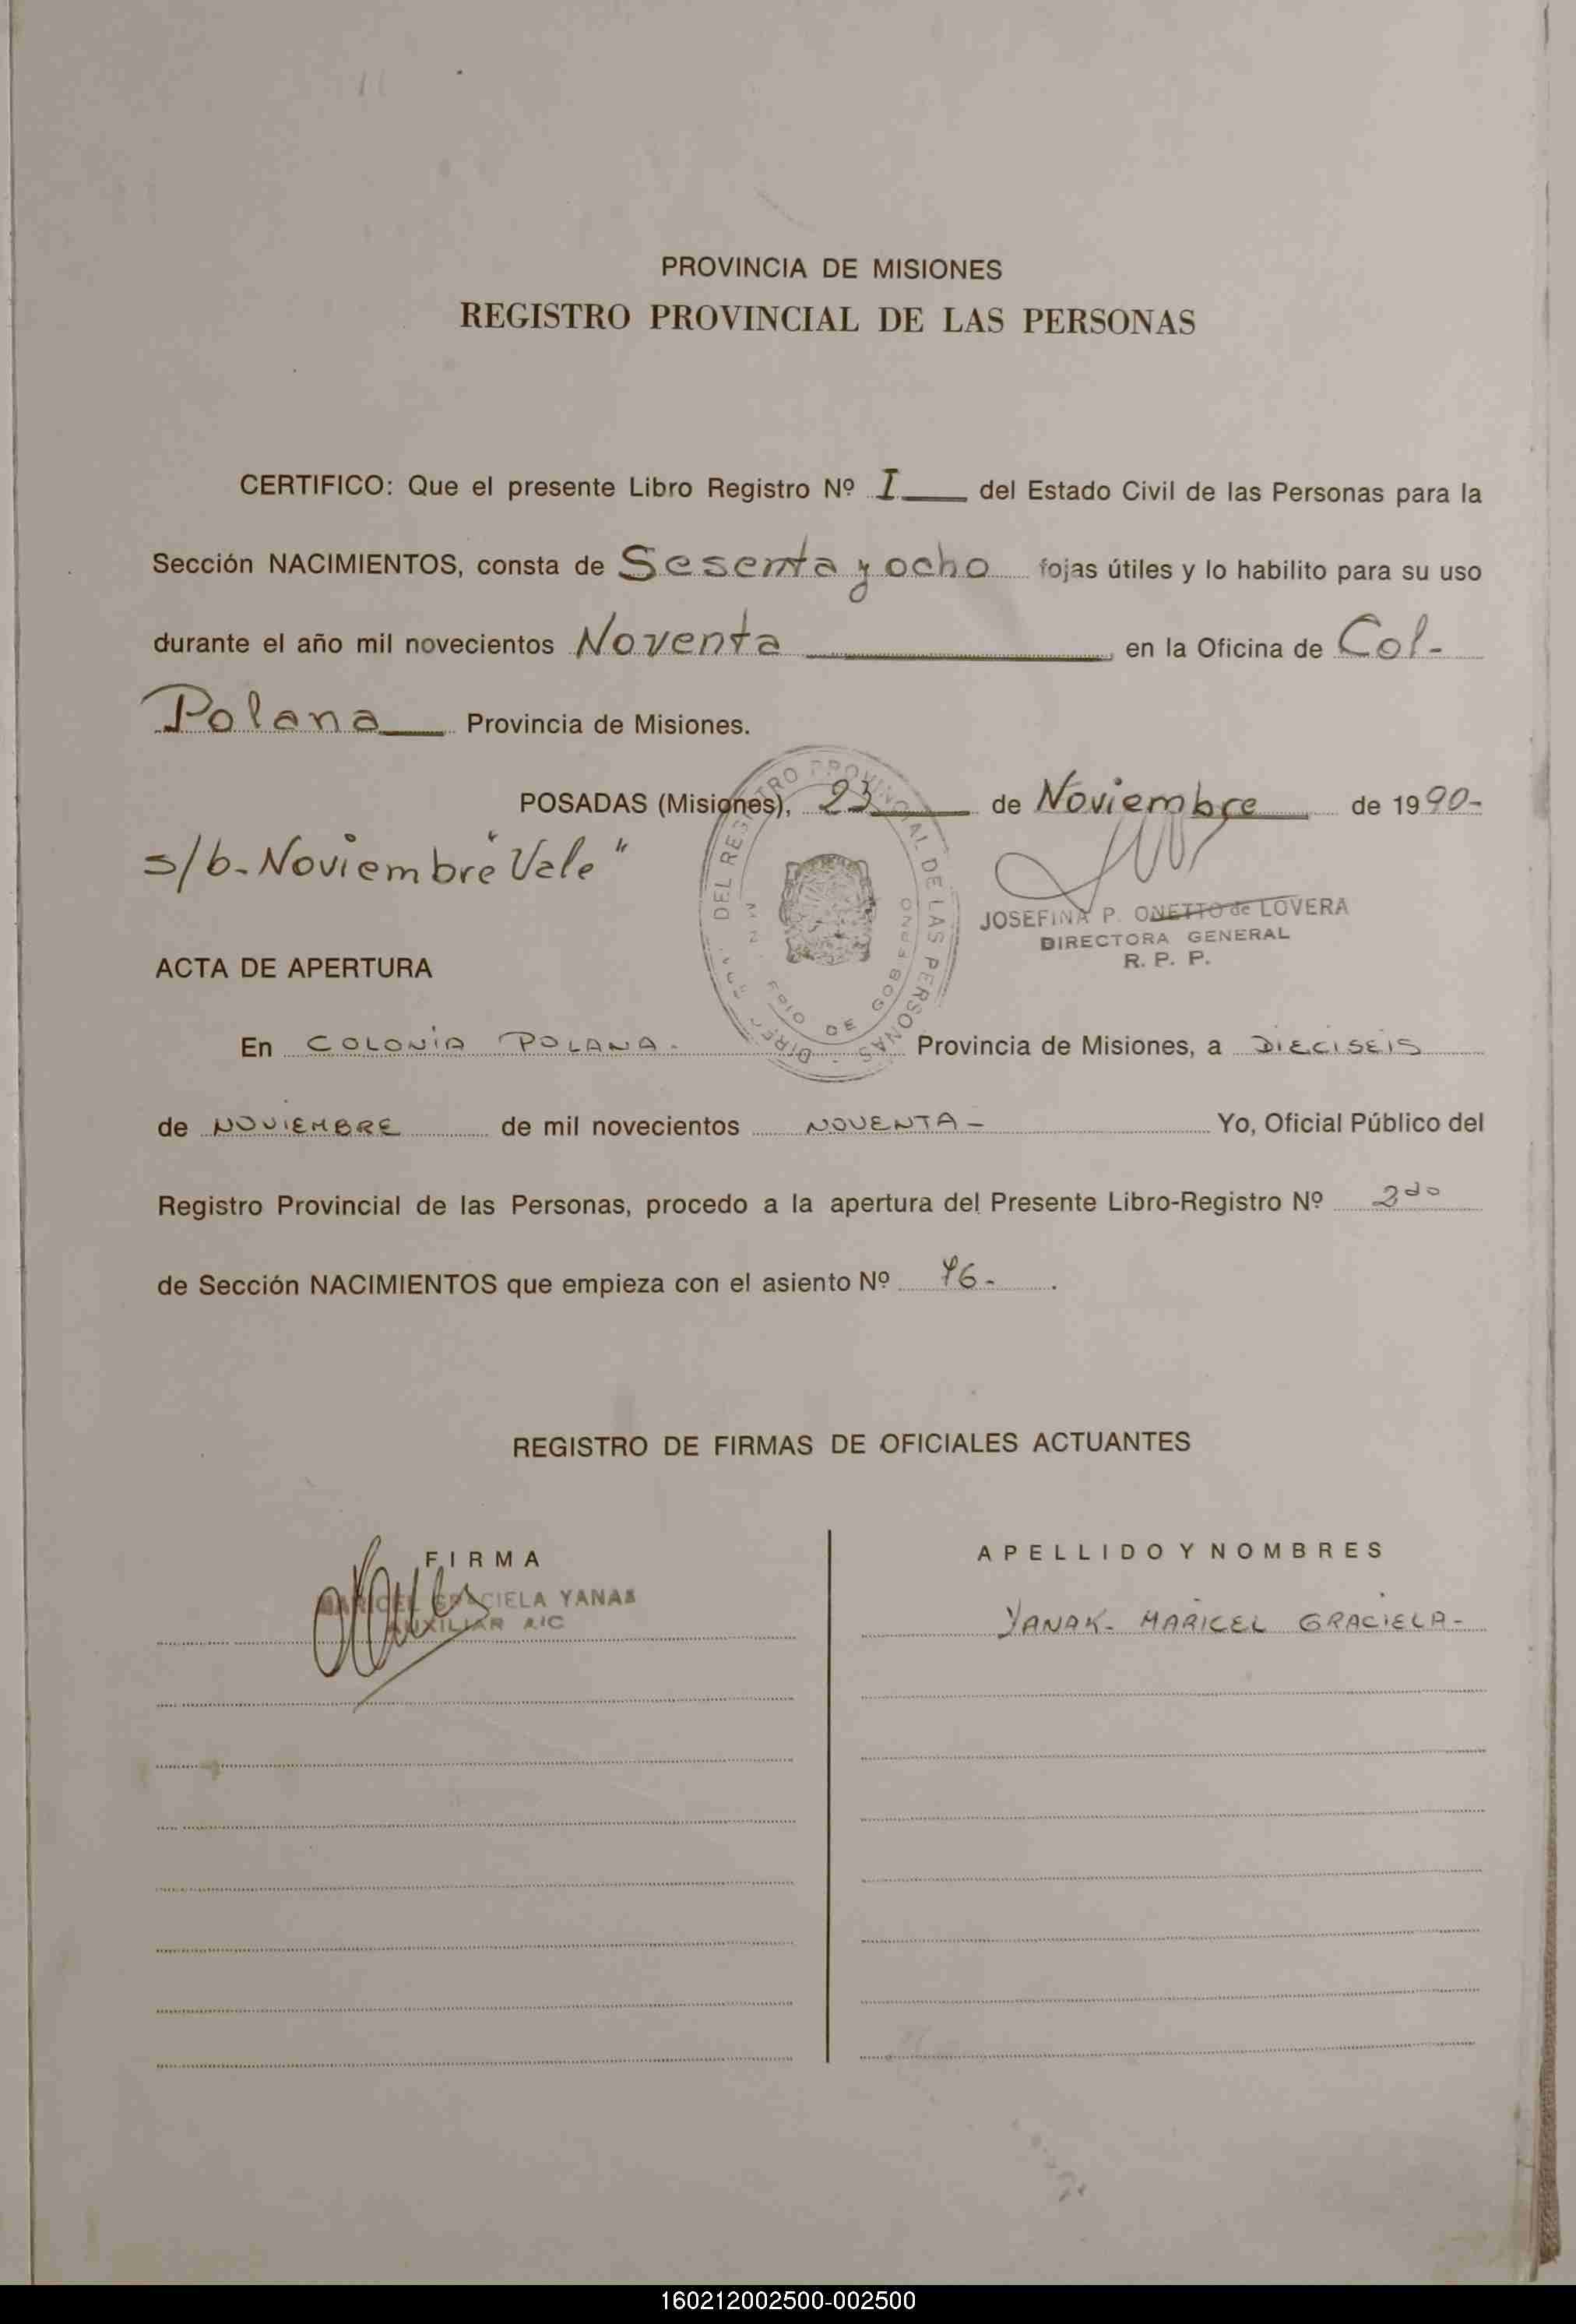 PROVINCIA DE MISIONES
REGISTRO PROVINCIAL DE LAS PERSONAS
CERTIFICO: Que el presente Libro Registro Nº I del Estado Civil de las Personas para la
Sección NACIMIENTOS, consta de Sesenta y ocho fojas útiles y lo habilito para su uso
durante el año mil novecientos Noventa, en la Oficina de Col-
Polana Provincia de Misiones.
POSADAS (Misiones), 23 de Noviembre de 1990-
s/b- Noviembre "Vale"
DEL REGISTRO PROVINCIAL DE LAS PERSONAS
DE GOBIERNO
JOSEFINA P. ONETTO de LOVERA
DIRECTORA GENERAL
R. P. P.
ACTA DE APERTURA
En COLONIA POLANA. Provincia de Misiones, a DIECISEIS
de NOVIEMBRE de mil novecientos NOVENTA - Yo, Oficial Público del
Registro Provincial de las Personas, procedo a la apertura del Presente Libro-Registro Nº 2do
de Sección NACIMIENTOS que empieza con el asiento Nº 76-.
REGISTRO DE FIRMAS DE OFICIALES ACTUANTES
FIRMA
APELLIDO Y NOMBRES
MARICEL GRACIELA YANAK
AUXILIAR A/C
YANAK- MARICEL GRACIELA-
160212002500-002500